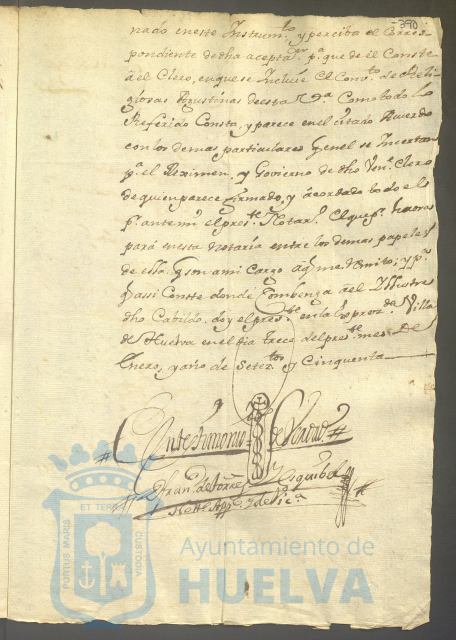 390
nado en este Instrum.to y perciba el Corres
pondiente de dha acepta.on p.a que de el Conste
á el Clero, en que se Incluie el Com.to de Reli
giosas Agustinas de esta V.a Como todo lo
Referido Consta, y parece en el citado Acuerdo
con los demas particulares q en el se Incertan
p.a el Regimen, y Govierno de dho Ven.e Clero
de quien parece firmado, y acordado todo ello
p.r ante mi el pres.te Notar.o
para en esta notaría entre los demas papeles
de ella q son a mi Cargo á q me Remito; y p.a
q assi Conste donde Combenga á el Illustre
dho Cabildo doy el pres.te en la Villa
de Huelva en el dia trece del pres.te mes de
Enero, y año de Setez.tos y Cinquenta
En testimonio de Verdad
Fran.co de Torres y Esquibel
Nott.o App.co y de Vic.a
PORTUS MARIS ET TERRE CUSTODIA
Ayuntamiento de
HUELVA